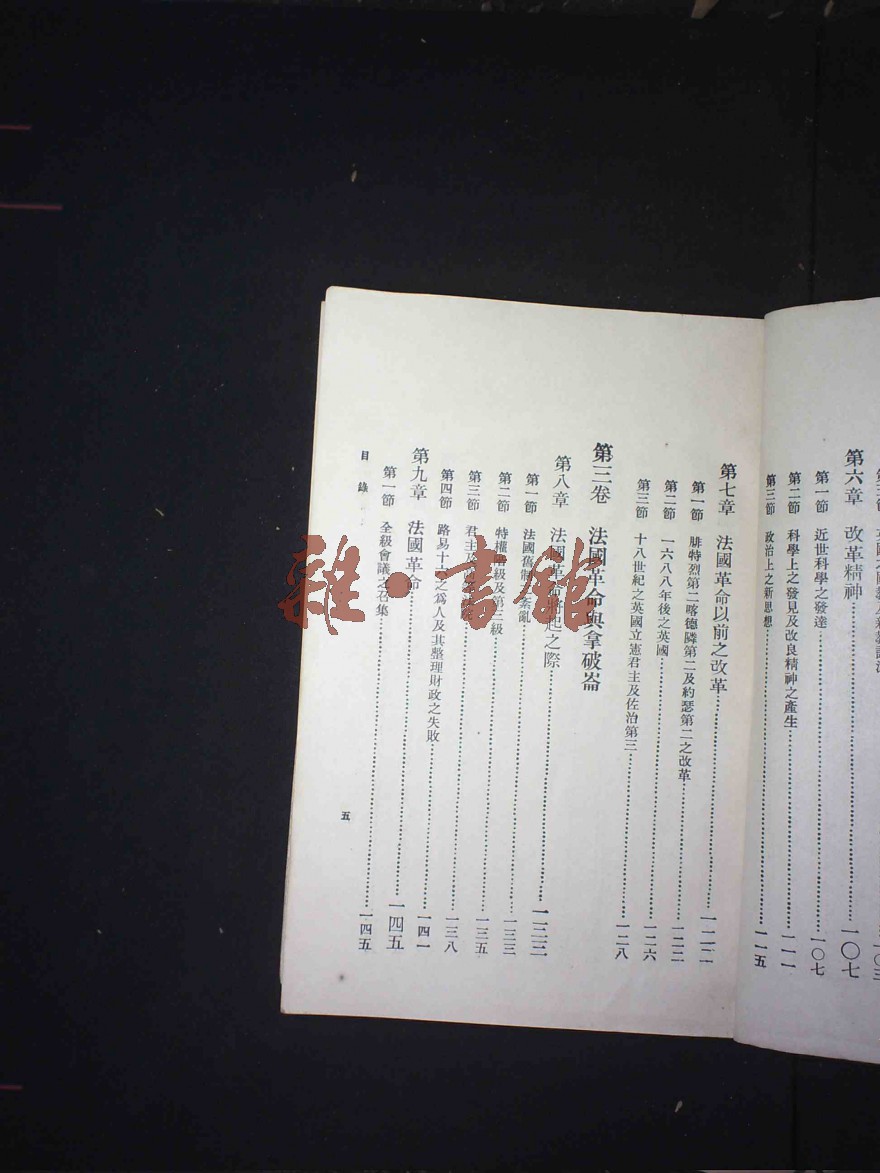 第六章 改革精神……一〇七
第一節 近世科學之發達……一〇七
第二節 科學上之發見及改良精神之產生……一一一
第三節 政治上之新思想……一一五
第七章 法國革命以前之改革……一二二
第一節 腓特烈第二喀德隣第二及約瑟第二之改革……一二二
第二節 一六八八年後之英國……一二六
第三節 十八世紀之英國立憲君主及佐治第三……一二八
第三卷 法國革命與拿破崙
第八章 法國革命將起之際……一三三
第一節 法國舊制之紊亂……一三三
第二節 特權階級及第三級……一三五
第三節 君主及……一三八
第四節 路易十六之爲人及其整理財政之失敗……一四一
第九章 法國革命……一四五
第一節 全級會議之召集……一四五
目錄
五
雜·書館